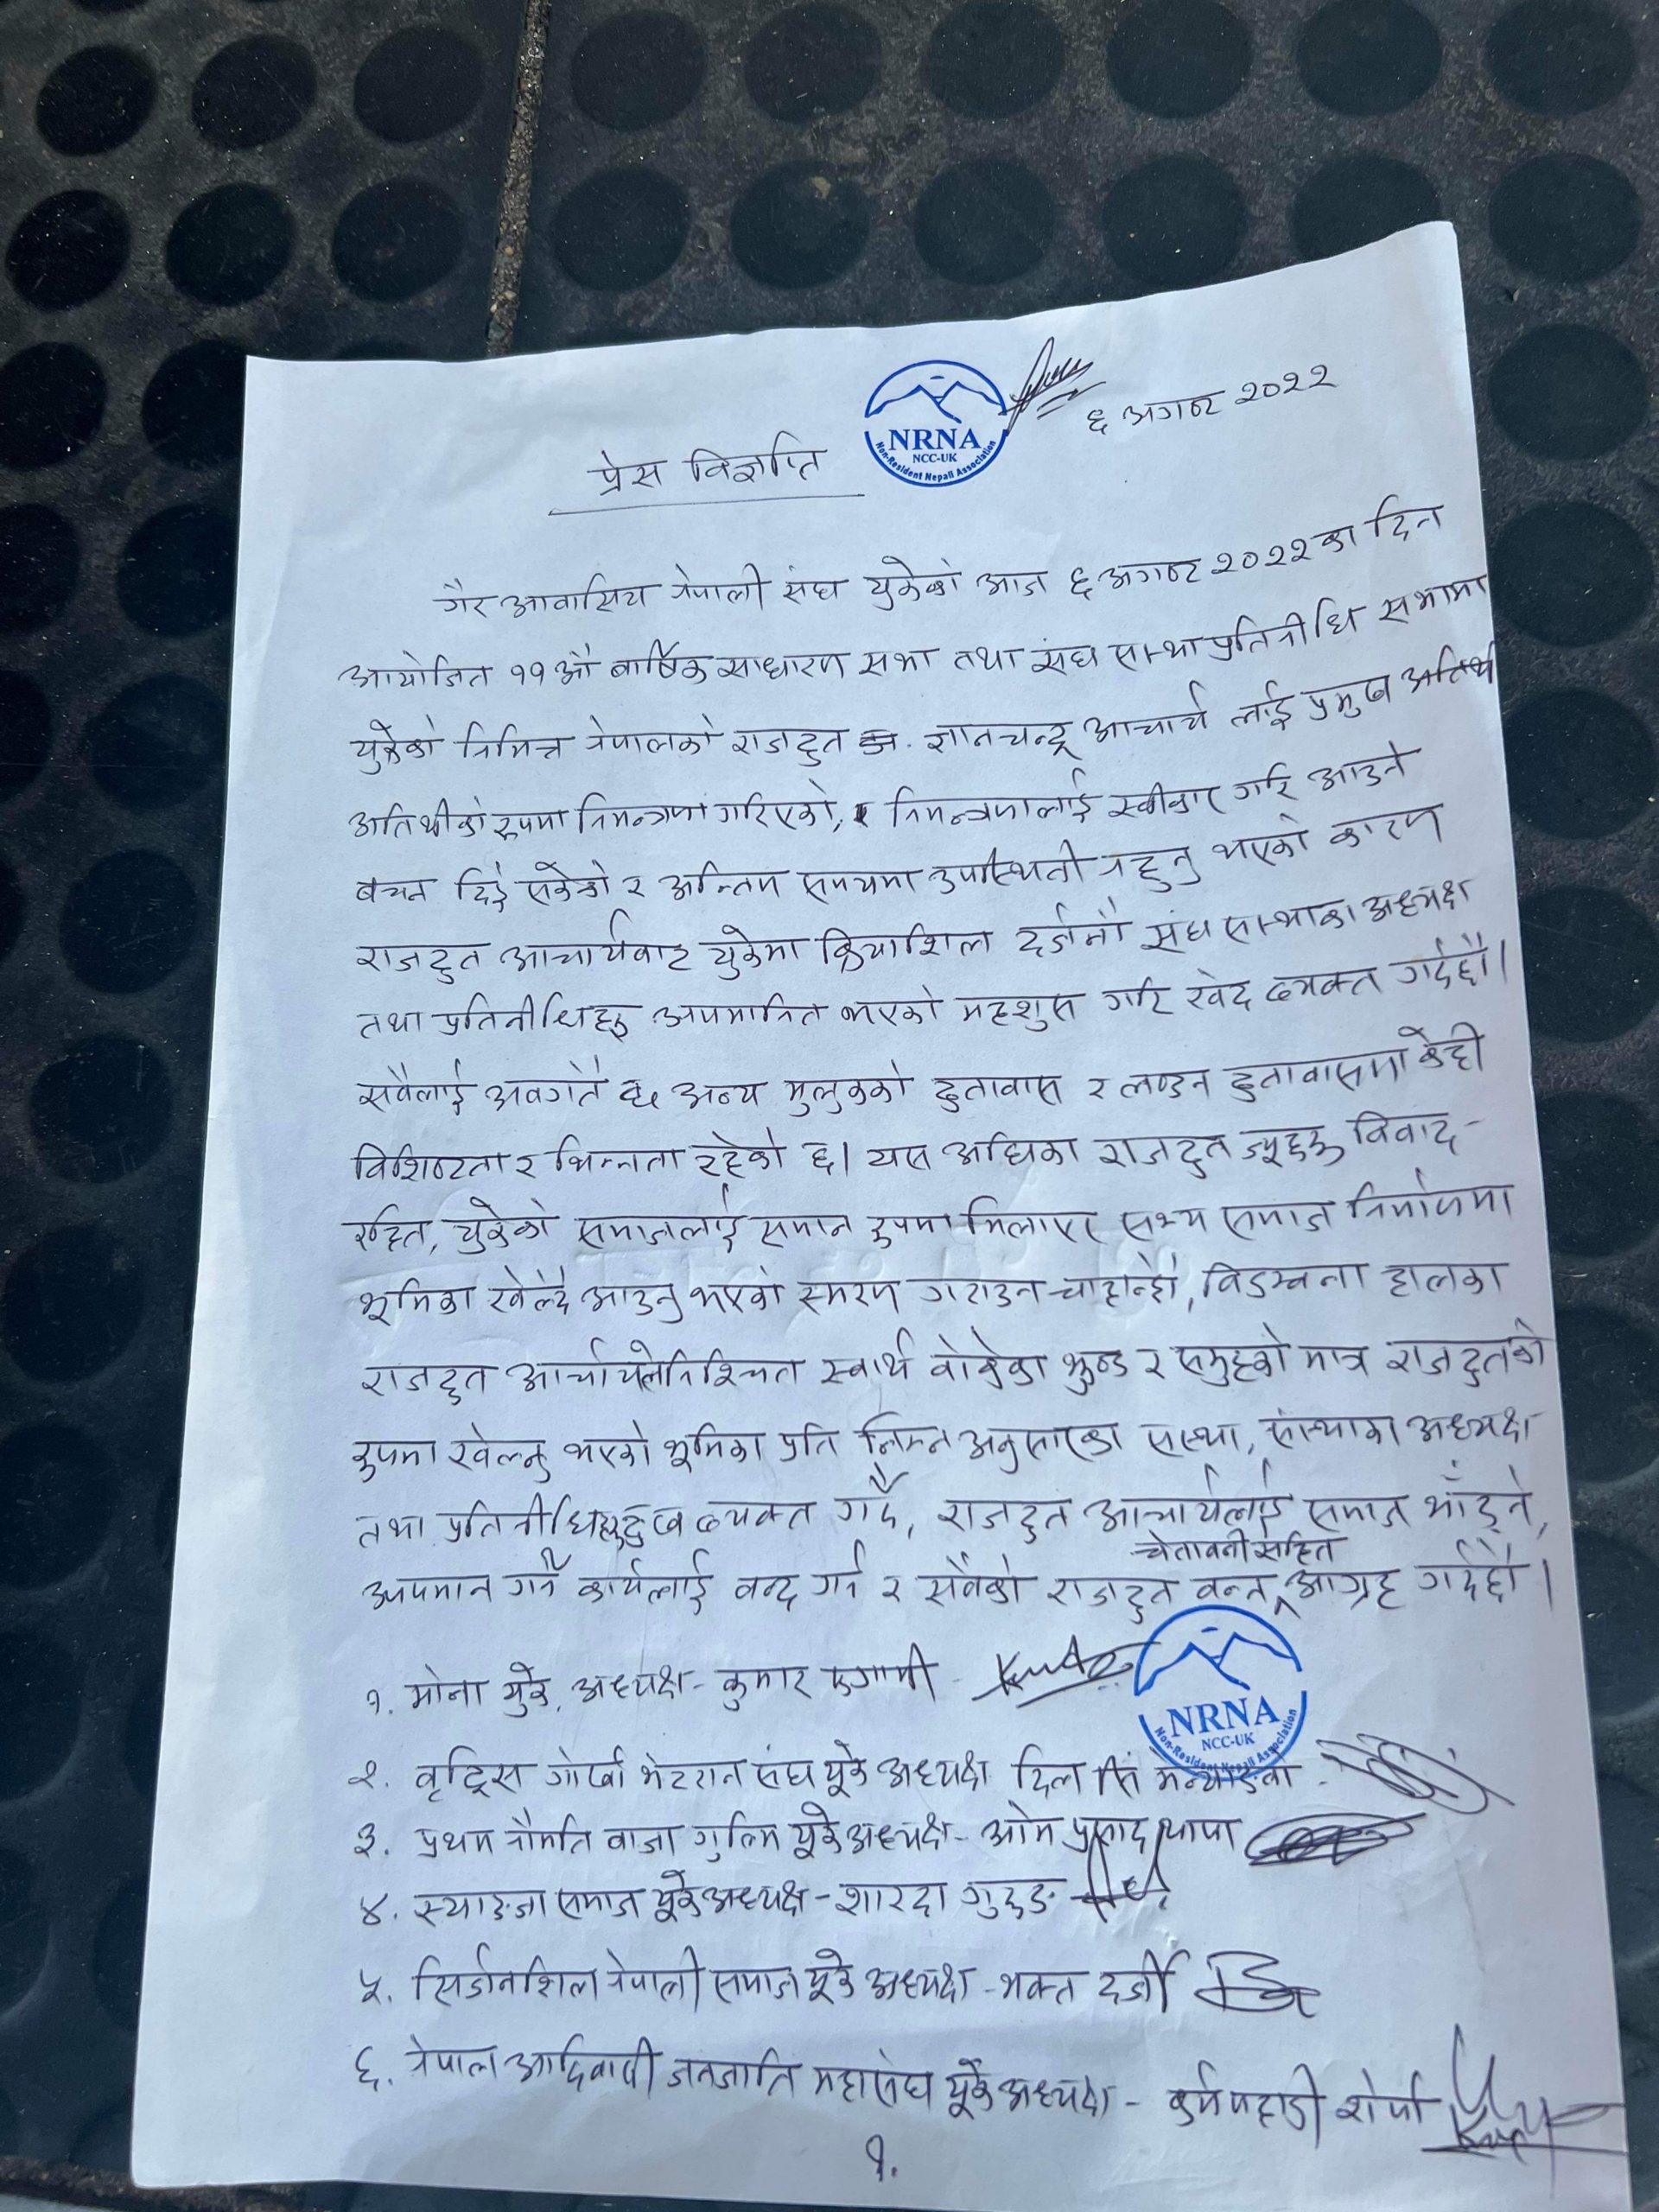 NRNA
NCC-UK
Non-Resident Nepali Association
६ अगष्ट २०२२
प्रेस विज्ञप्ति
गैर आवासिय नेपाली संघ युकेको आज ६ अगष्ट २०२२ का दिन
आयोजित ११ औं बार्षिक साधारण सभा तथा संघ सस्था प्रतिनीधि सभामा
युकेको निमित्त नेपालको राजदुत ज्ञानचन्द्र आचार्य लाई प्रमुख अतिथी
अतिथीको रुपमा निमन्त्रणा गरिएको, निमन्त्रणालाई स्वीकार गरि आउने
बचन दिई सकेको र अन्तिम समयमा उपस्थिती नहुनु भएको कारण
राजदुत आचार्यबाट युकेमा क्रियाशिल दर्जनौ संघ सस्थाका अध्यक्ष
तथा प्रतिनीधिहरु अपमानित भएको महशुस गरि खेद व्यक्त गर्दछौं।
सबैलाई अवगतै छ अन्य मुलुकको दुतावास र लण्डन दुतावासमा केही
विशिष्टता र भिन्नता रहेको छ। यस अघिका राजदुत ज्यूहरु विवाद-
रहित, युकेको समाजलाई समान रुपमा मिलाएर सभ्य समाज निर्माणमा
भूमिका खेल्दै आउनु भएको स्मरण गराउन चाहान्छौं, विडम्वना हालका
राजदुत आर्चायले निश्चित स्वार्थ बोकेका झुण्ड र समुहको मात्र राजदुतको
रुपमा खेल्नु भएको भूमिका प्रति निम्न अनुसारका सस्था, सस्थाका अध्यक्ष
तथा प्रतिनीधिहरु दुख व्यक्त गर्दै, राजदुत आचार्यलाई समाज भाँड्ने,
चेतावनी सहित
अपमान गर्ने कार्यलाई बन्द गर्न र सबैको राजदुत बन्न आग्रह गर्दछौं।
१. मोना युके, अध्यक्ष - कुमार
NRNA
NCC-UK
Non-Resident Nepali Association
२. वृटिस गोर्खा भेटरान संघ यूके अध्यक्ष दिल
३. प्रथम नौमति बाजा गुल्मि यूके अध्यक्ष - ओम प्रसाद थापा
४. स्याङजा समाज यूके अध्यक्ष - शारदा गुरुङ
५. सिर्जनशिल नेपाली समाज यूके अध्यक्ष - भक्त दर्जी
६. नेपाल आदिवासी जनजाति महासंघ यूके अध्यक्ष - शेर्पा
१.